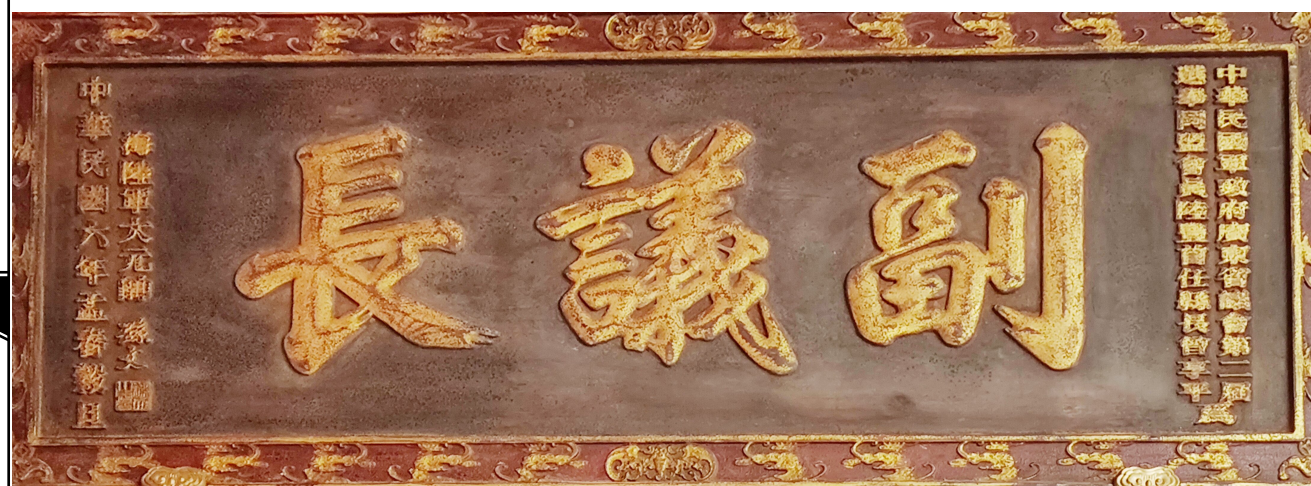 中華民國軍政府廣東省議會第二届
選舉同盟會員陸豐首任縣長曾享平
為
副議長
海陸軍大元帥 孫文
中華民國六年孟春穀旦